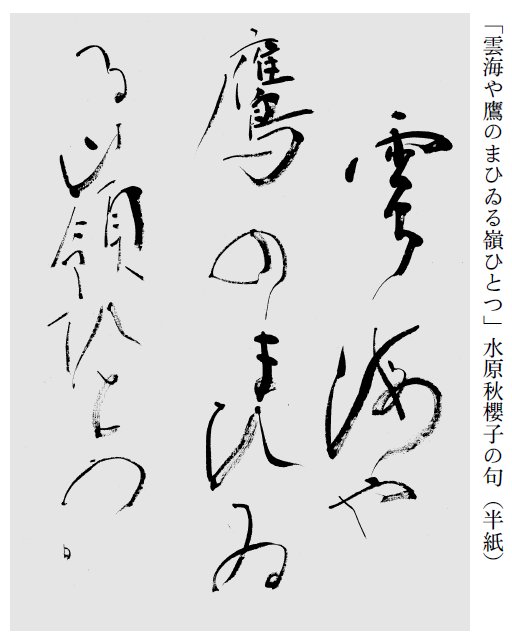 「雲海や鷹のまひゐる嶺ひとつ」水原秋櫻子の句（半紙）
雲海や
鷹のまひゐ
る嶺ひとつ